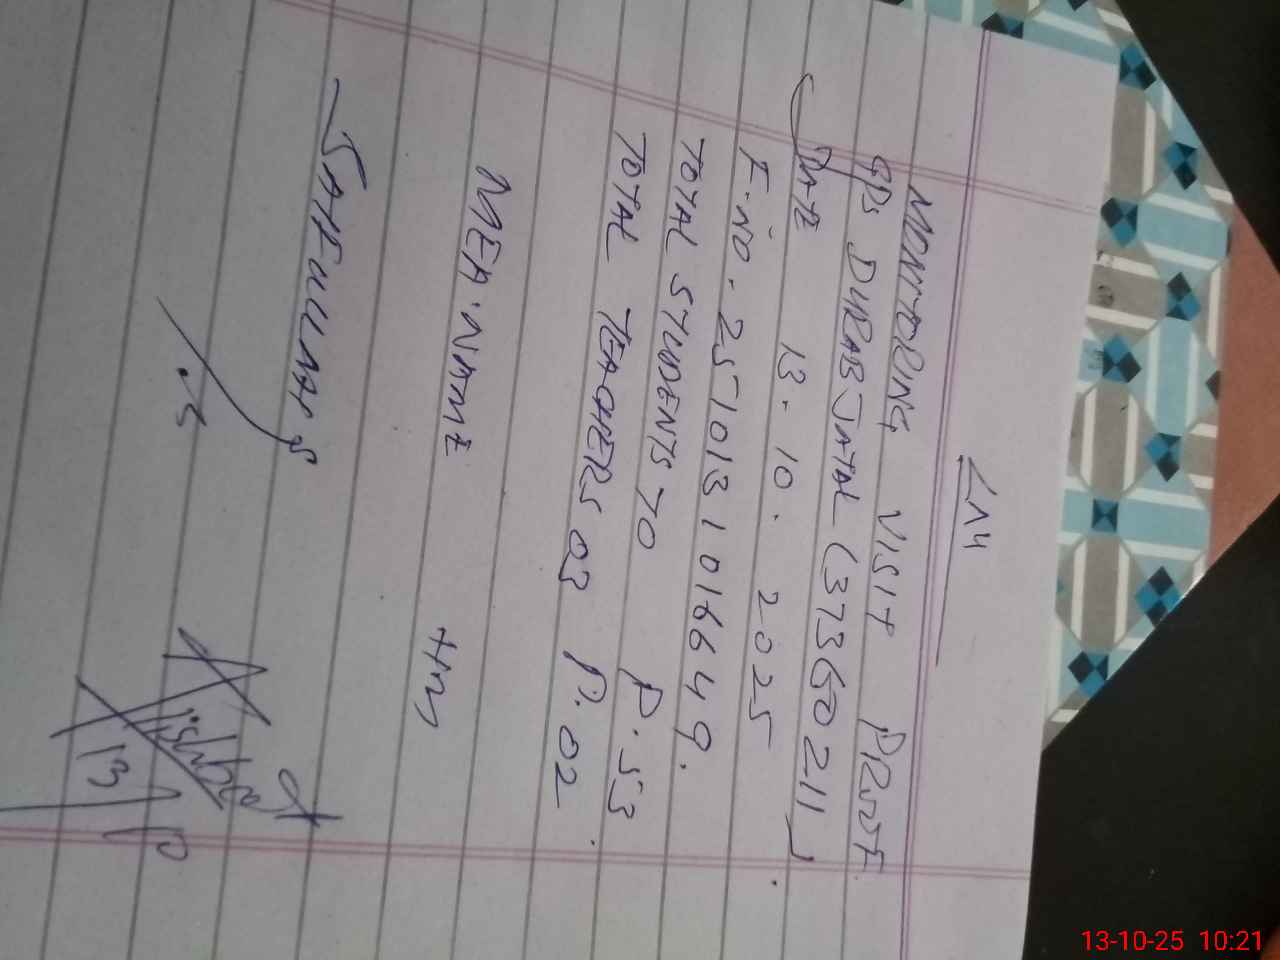 214
MONITORING VISIT PROOF
GPS DURAB JATAL (37360211)
DATE 13.10.2025
F.NO. 25101310166449.
TOTAL STUDENTS 70 P.53
TOTAL TEACHERS 03 P.02
MEA.NAME HM
SAIFULLAH
13/10
13-10-25 10:21